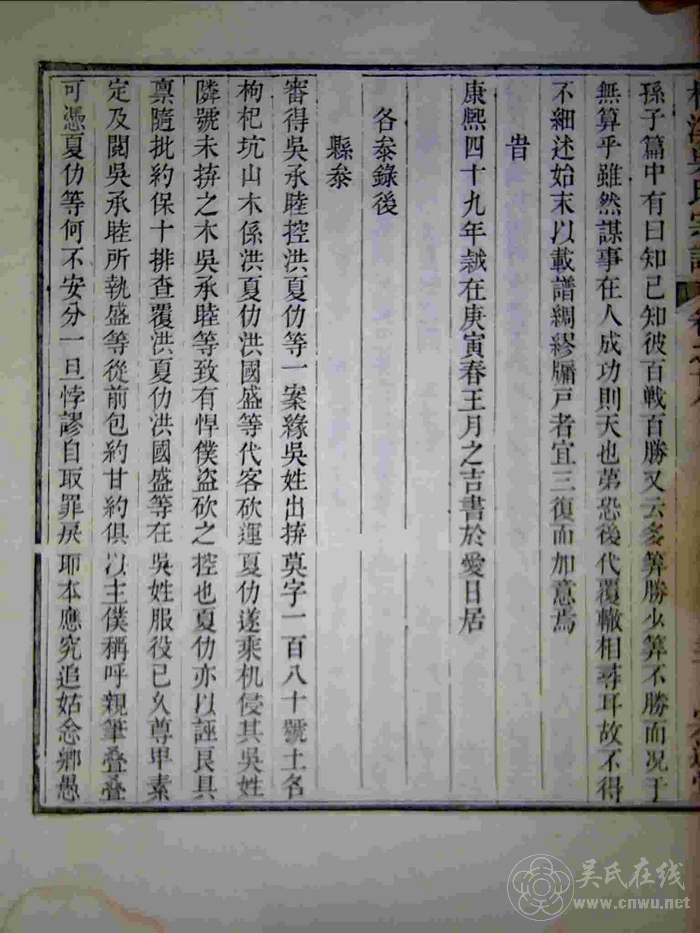 孫子篇中有曰知己知彼百戰百勝又云多算勝少算不勝而况于
無算乎雖然謀事在人成功則天也第恐後代覆轍相尋耳故不得
不細述始末以載譜綢繆牖戸者宜三復而加意焉
旹
康熈四十九年歳在庚寅春王月之吉書於愛日居
各叅錄後
縣叅
審得吳承睦控洪夏仂等一案緣吳姓出拚莫字一百八十號土名
枸杞坑山木係洪夏仂洪國盛等代客砍運夏仂遂乘机侵其吳姓
隣號未拚之木吳承睦等致有悍僕盗砍之控也夏仂亦以誣良具
禀隨批約保十排查覆洪夏仂洪國盛等在吳姓服役已久尊卑素
定及閱吳承睦所執盛等從前包約甘約俱以主僕稱呼親筆叠叠
可憑夏仂等何不安分一旦悖謬自取罪戾耶本應究追姑念鄉愚
吴氏在线
www.cnwu.net